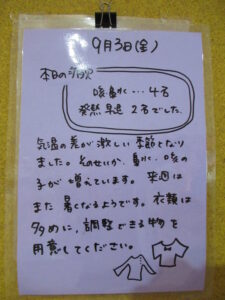 9月3日(金)
本日の病状
咳鼻水…4名
発熱早退 2名でした。
気温の差が激しい季節となり
ました。そのせいか、鼻水、咳の
子が増えています。来週は
また暑くなるようです。衣類は
多めに、調整できる物を
用意してください。